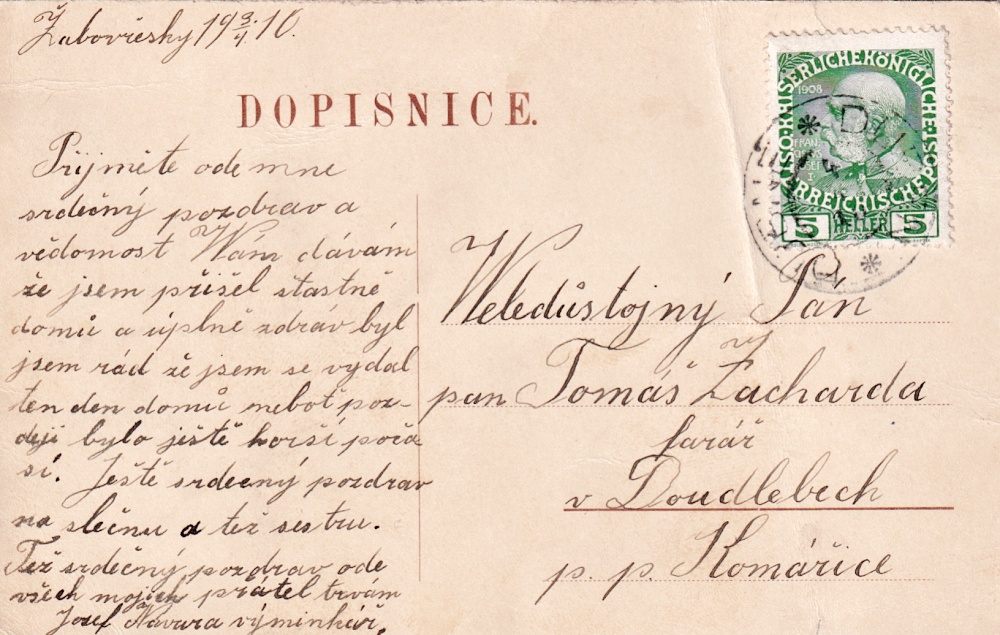 Žabovřesky 19 3/4 10.
DOPISNICE.
Přijměte ode mne
srdečný pozdrav a
vědomost Wám dávám
že jsem přišel štastně
domů a úplně zdráv byl
jsem rád že jsem se vydal
ten den domů neboť poz-
ději bylo ještě horší počа
sí. Ještě srdečný pozdrav
na slečnu a též sestru.
Též srdečný pozdrav ode
všech mojich přátel trvám
Josef Návara výminkář.
1908
KAISERLICHEKÖNIGLICHE ÖSTERREICHISCHE POST
FRANZ JOSEF I
5 HELLER 5
Weledůstojný Pan
pan Tomáš Zacharda
farář
v Doudlebech
p. p. Komářice